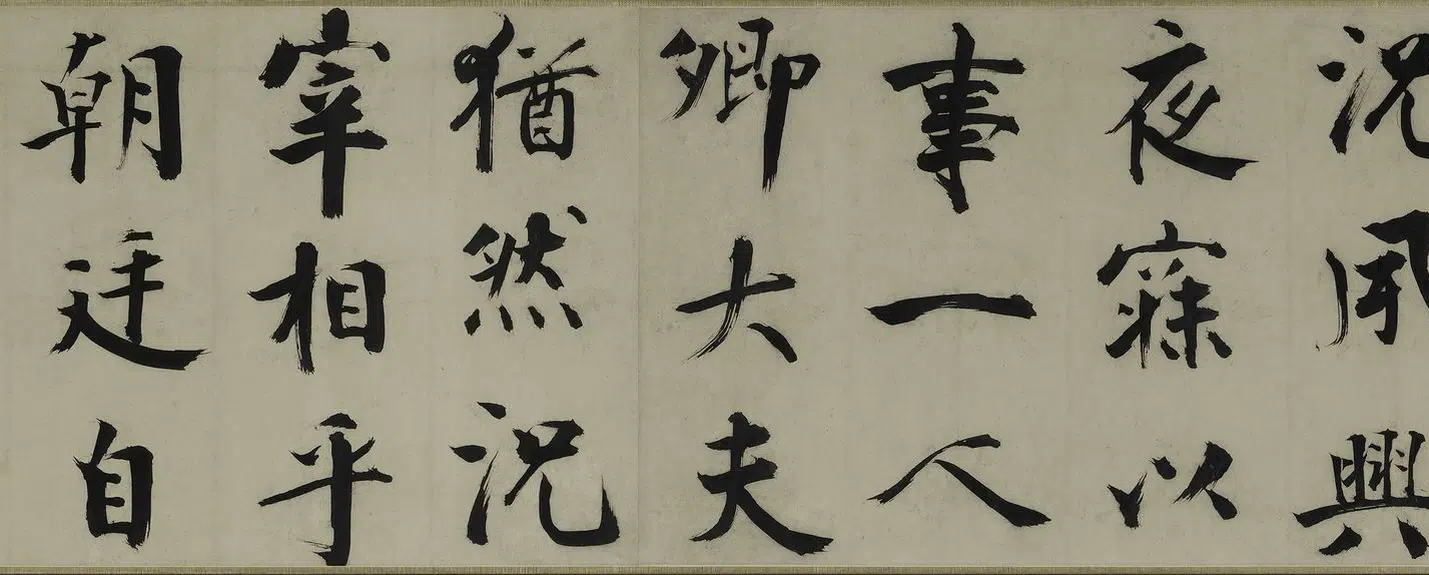 況夙興
夜寐以
事一人
卿大夫
猶然況
宰相乎
朝廷自